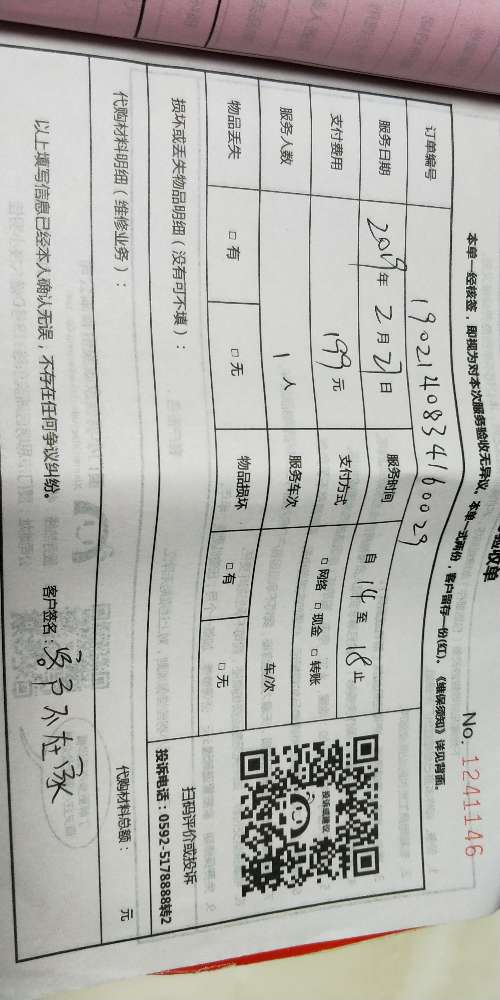 验收单
No. 1241146
本单一经核签，即视为对本次服务验收无异议。本单一式两份，客户留存一份(红)。《维保须知》详见背面。
订单编号 1902140834160029
服务日期 2019年 2月 27日 服务时间 自 14 至 18 止
支付费用 199元 支付方式 □ 网络 □ 现金 □ 转账
服务人数 1 人 服务车次 车/次
物品丢失 □ 有 □ 无 物品损坏 □ 有 □ 无
损坏或丢失物品明细（没有可不填）：
投诉或建议
扫码评价或投诉
投诉电话：0592-5178888转2
代购材料明细（维修业务）：
代购材料总额： 元
以上填写信息已经本人确认无误，不存在任何争议纠纷。 客户签名：客户不在家